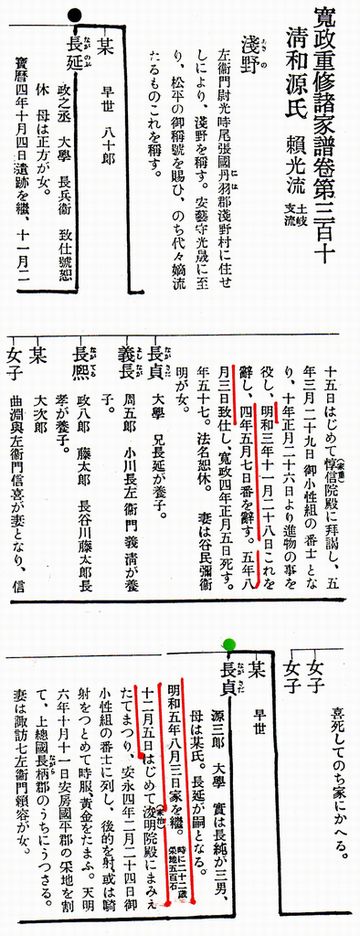 寛政重修諸家譜卷第三百十
清和源氏 頼光流 土岐支流
淺野 あさの
左衞門尉光時尾張國丹羽郡淺野村に住せ
しにより、淺野を稱す。安藝守光晟に至
り、松平の御稱號を賜ひ、のち代々嫡流
たるものこれを稱す。
某 早世 八十郎
長延 ながのぶ
政之丞 大學 長兵衞 致仕號恕
休 母は正方が女。
寶曆四年十月四日遺跡を繼、十一月二
十五日はじめて惇信院殿(家重)に拜謁し、五
年三月二十九日御小性組の番士とな
り、十年正月二十六日より進物の事を
役し、明和三年十一月二十八日これを
辭し、四年五月七日番を辭す。五年八
月三日致仕し、寛政四年正月五日死す。
年五十七。法名恕休。 妻は谷民彌衞
明が女。
長貞 ながさだ 大學 兄長延が養子。
義長 よしなが 周五郎 小川長左衞門義淸が養
子。
長凞 ながてる 政八郎 藤太郎 長谷川藤太郎長
孝が養子。
某 大次郎
女子 曲淵與左衞門信喜が妻となり、信
喜死してのち家にかへる。
女子
女子
某 早世
長貞 ながさだ
源三郎 大學 實は長純が三男、
母は某氏。長延が嗣となる。
明和五年八月三日家を繼。時に二十二歳 采地五百石
十二月五日はじめて浚明院殿(家治)にまみえ
たてまつり、安永四年二月二十四日御
小性組の番士に列し、後的を射、或は騎
射をつとめて時服、黃金をたまふ。天明
六年十月十一日安房國平郡の采地を割
て、上總國長柄郡のうちにうつさる。
妻は諏訪七左衞門頼容が女。